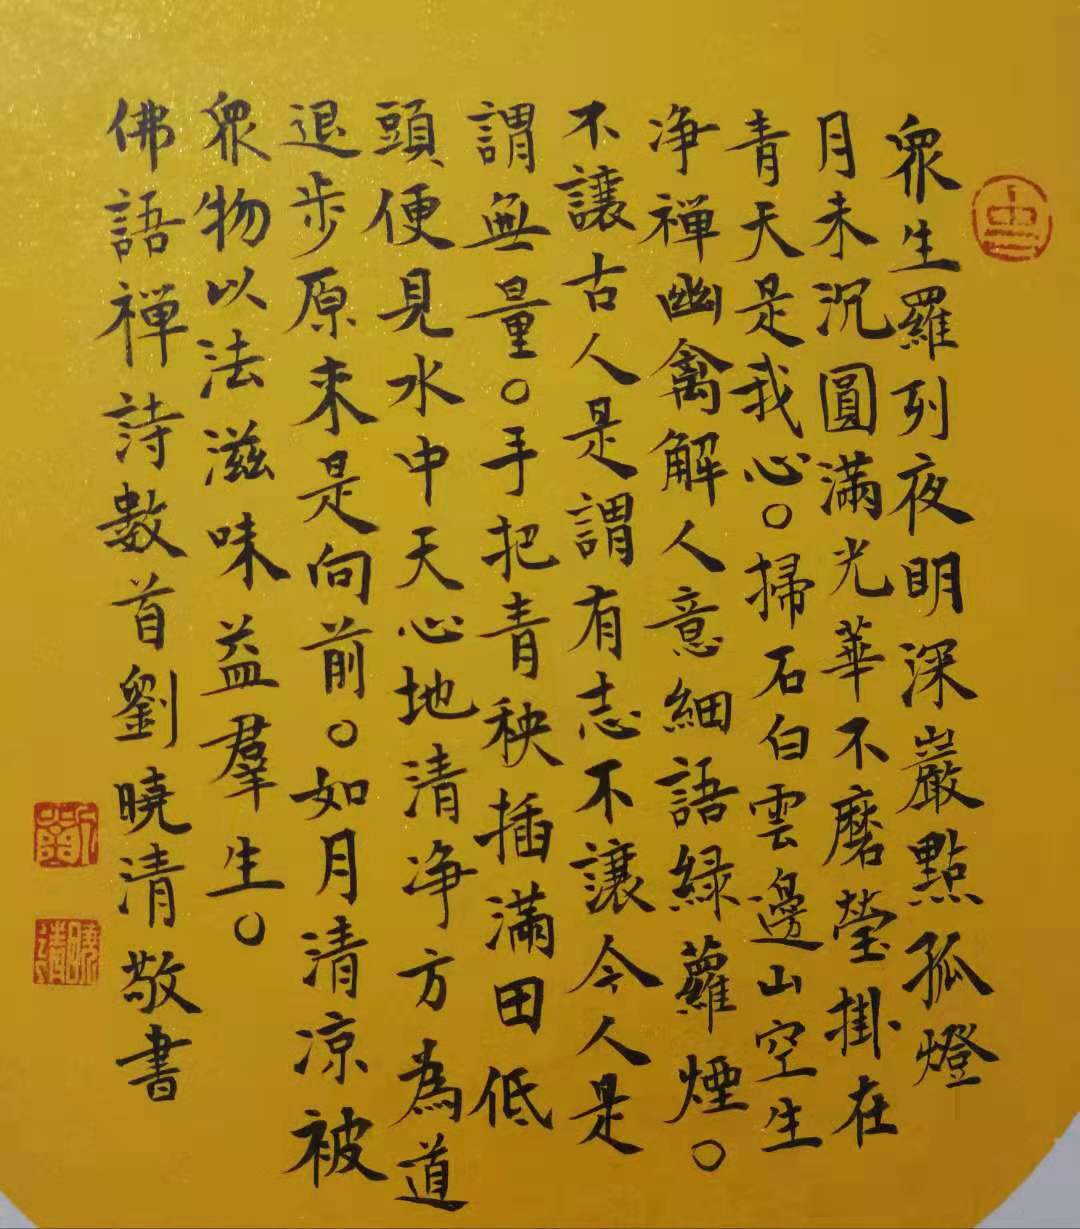 眾生羅列夜明深巖點孤燈
月未沉圓滿光華不磨瑩掛在
青天是我心。掃石白雲邊山空生
净禅幽禽解人意細語綠蘿煙。
不讓古人是謂有志不讓今人是
謂無量。手把青秧插滿田低
頭便見水中天心地清净方為道
退步原来是向前。如月清凉被
眾物以法滋味益羣生。
佛語禅詩數首劉曉清敬書
劉
曉清